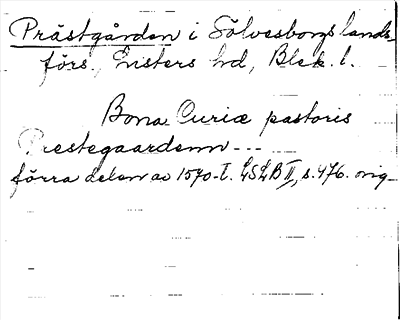 Prästgården i Sölvesborgs lands-
förs., Listers hd, Blek. l.
Bona Curiæ pastoris
Prestegaardenn ---
förra delen av 1570-t. LSLB II, s. 476. orig